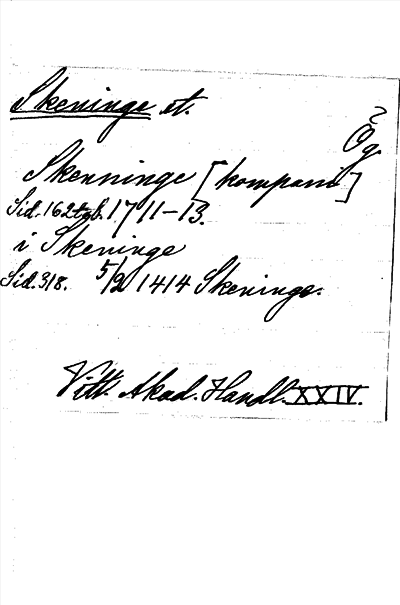 Skeninge st.
Ög
Skenninge [kompani]
Sid. 162 tgb. 17 11-13.
i Skeninge
Sid. 318. 5/2 1414 Skeninge.
Vitt. Akad. Handl. XXIV.